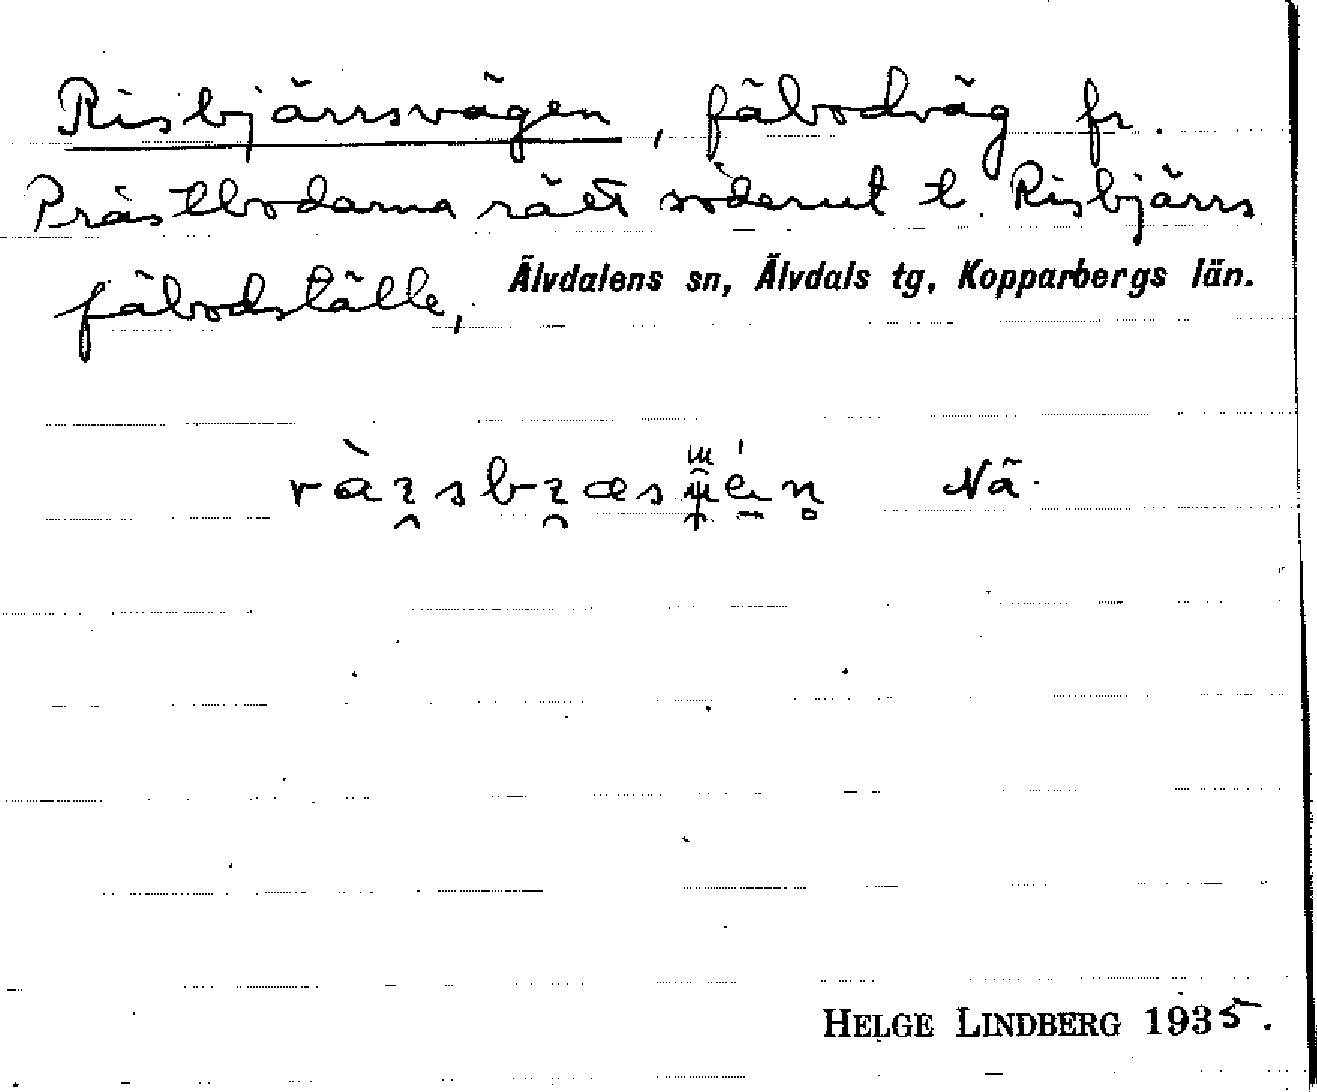 Risbjärrsvägen, fäbodväg fr.
Prästbodarna rätt söderut t. Risbjärrs
fäbodställe, Älvdalens sn, Älvdals tg, Kopparbergs län.
Nä.
HELGE LINDBERG 1935.